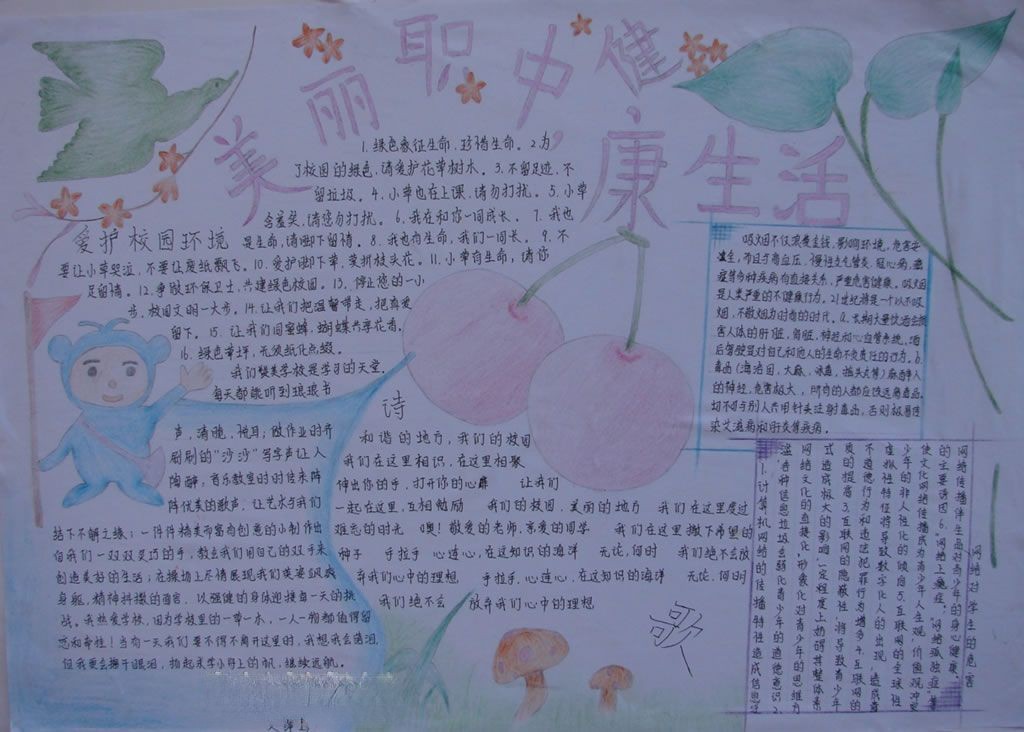 美丽职中,健康生活
1.绿色象征生命,珍惜生命。2.为
了校园的绿色,请爱护花草树木。3.不留足迹,不
留垃圾。4.小草也在上课,请勿打扰。5.小草
含羞笑,请您勿打扰。6.我在和你一同成长。7.我也
爱护校园环境
是生命,请脚下留情。8.我也有生命,我们一同长。9.不
要让小草哭泣,不要让废纸飘飞。10.爱护脚下草,莫折枝头花。11.小草有生命,请你
足留情。12.争做环保卫士,共建绿色校园。13.停止您的一小
步,校园文明一大步。14.让我们把温馨带走,把真爱
留下。15.让我们同蜜蜂,蝴蝶共享花香。
16.绿色草坪,无须纸化点缀。
我们赞美学校是学习的天堂,
每天都能听到琅琅书
声,清脆,悦耳;做作业时齐
刷刷的“沙沙”写字声让人
陶醉,音乐教室时时传来阵
阵优美的歌声,让艺术与我们
结下不解之缘;一件件精美而富有创意的小制作出
自我们一双双灵巧的手,教会我们用自己的双手来
创造美好的生活;在操场上尽情展现我们英姿飒爽
身躯,精神抖擞的面容,以强健的身体迎接每一天的挑
战。我热爱学校,因为学校里的一草一木,一人一物都值得留
恋和牵挂!当有一天我们要不得不离开这里时,我想我会落泪,
但我更会擦干眼泪,扬起求学小舟上的帆,继续远航。
诗
和谐的地方,我们的校园
我们在这里相识,在这里相聚
伸出你的手,打开你的心扉 让我们
一起在这里,互相勉励 我们的校园,美丽的地方 我们在这里度过
难忘的时光 噢!敬爱的老师,亲爱的同学 我们在这里撒下希望的
种子 手拉手 心连心,在这知识的海洋 无论,何时 我们绝不会放
弃我们心中的理想 手拉手,心连心,在这知识的海洋 无论,何时
我们绝不会 放弃我们心中的理想
歌
吸烟不仅浪费金钱,影响环境,危害安
全,而且与高血压、慢性支气管炎、冠心病,癌
症等多种疾病有直接关系,严重危害健康。吸烟
是人类严重的不健康行为。21世纪将是一个以不吸
烟,不敬烟为时尚的时代。a.长期大量饮酒会损
害人体的肝脏,肾脏,神经和心血管系统,酒
后驾驶是对自己和他人的生命不负责任的行为。b.
毒品(海洛因,大麻,冰毒,摇头丸等)麻醉人
的神经,危害极大,所有的人都应该远离毒品,
切不可与别人共用针头注射毒品,否则极易传
染艾滋病和肝炎等疾病。
网络对学生的危害
1.计算机网络的传播特性造成信息污
滥,各种信息垃圾会弱化青少年的道德意识2.
网络文化的直接化,形象化对青少年的思维方
式造成极大的影响,一定程度上妨碍其整体素
质的提高3.互联网的隐蔽性,将导致青少年
不道德行为和违法犯罪行为增多4.互联网的
虚拟性特征将导致数字化人的出现,造成青
少年的非人性化的倾向5.互联网的全球性
使文化网络传播成为青少年人生观、价值观冲突
的主要诱因6.“网络上瘾症”、“网络孤独症”等
网络传播伴生品对青少年的身心健康。